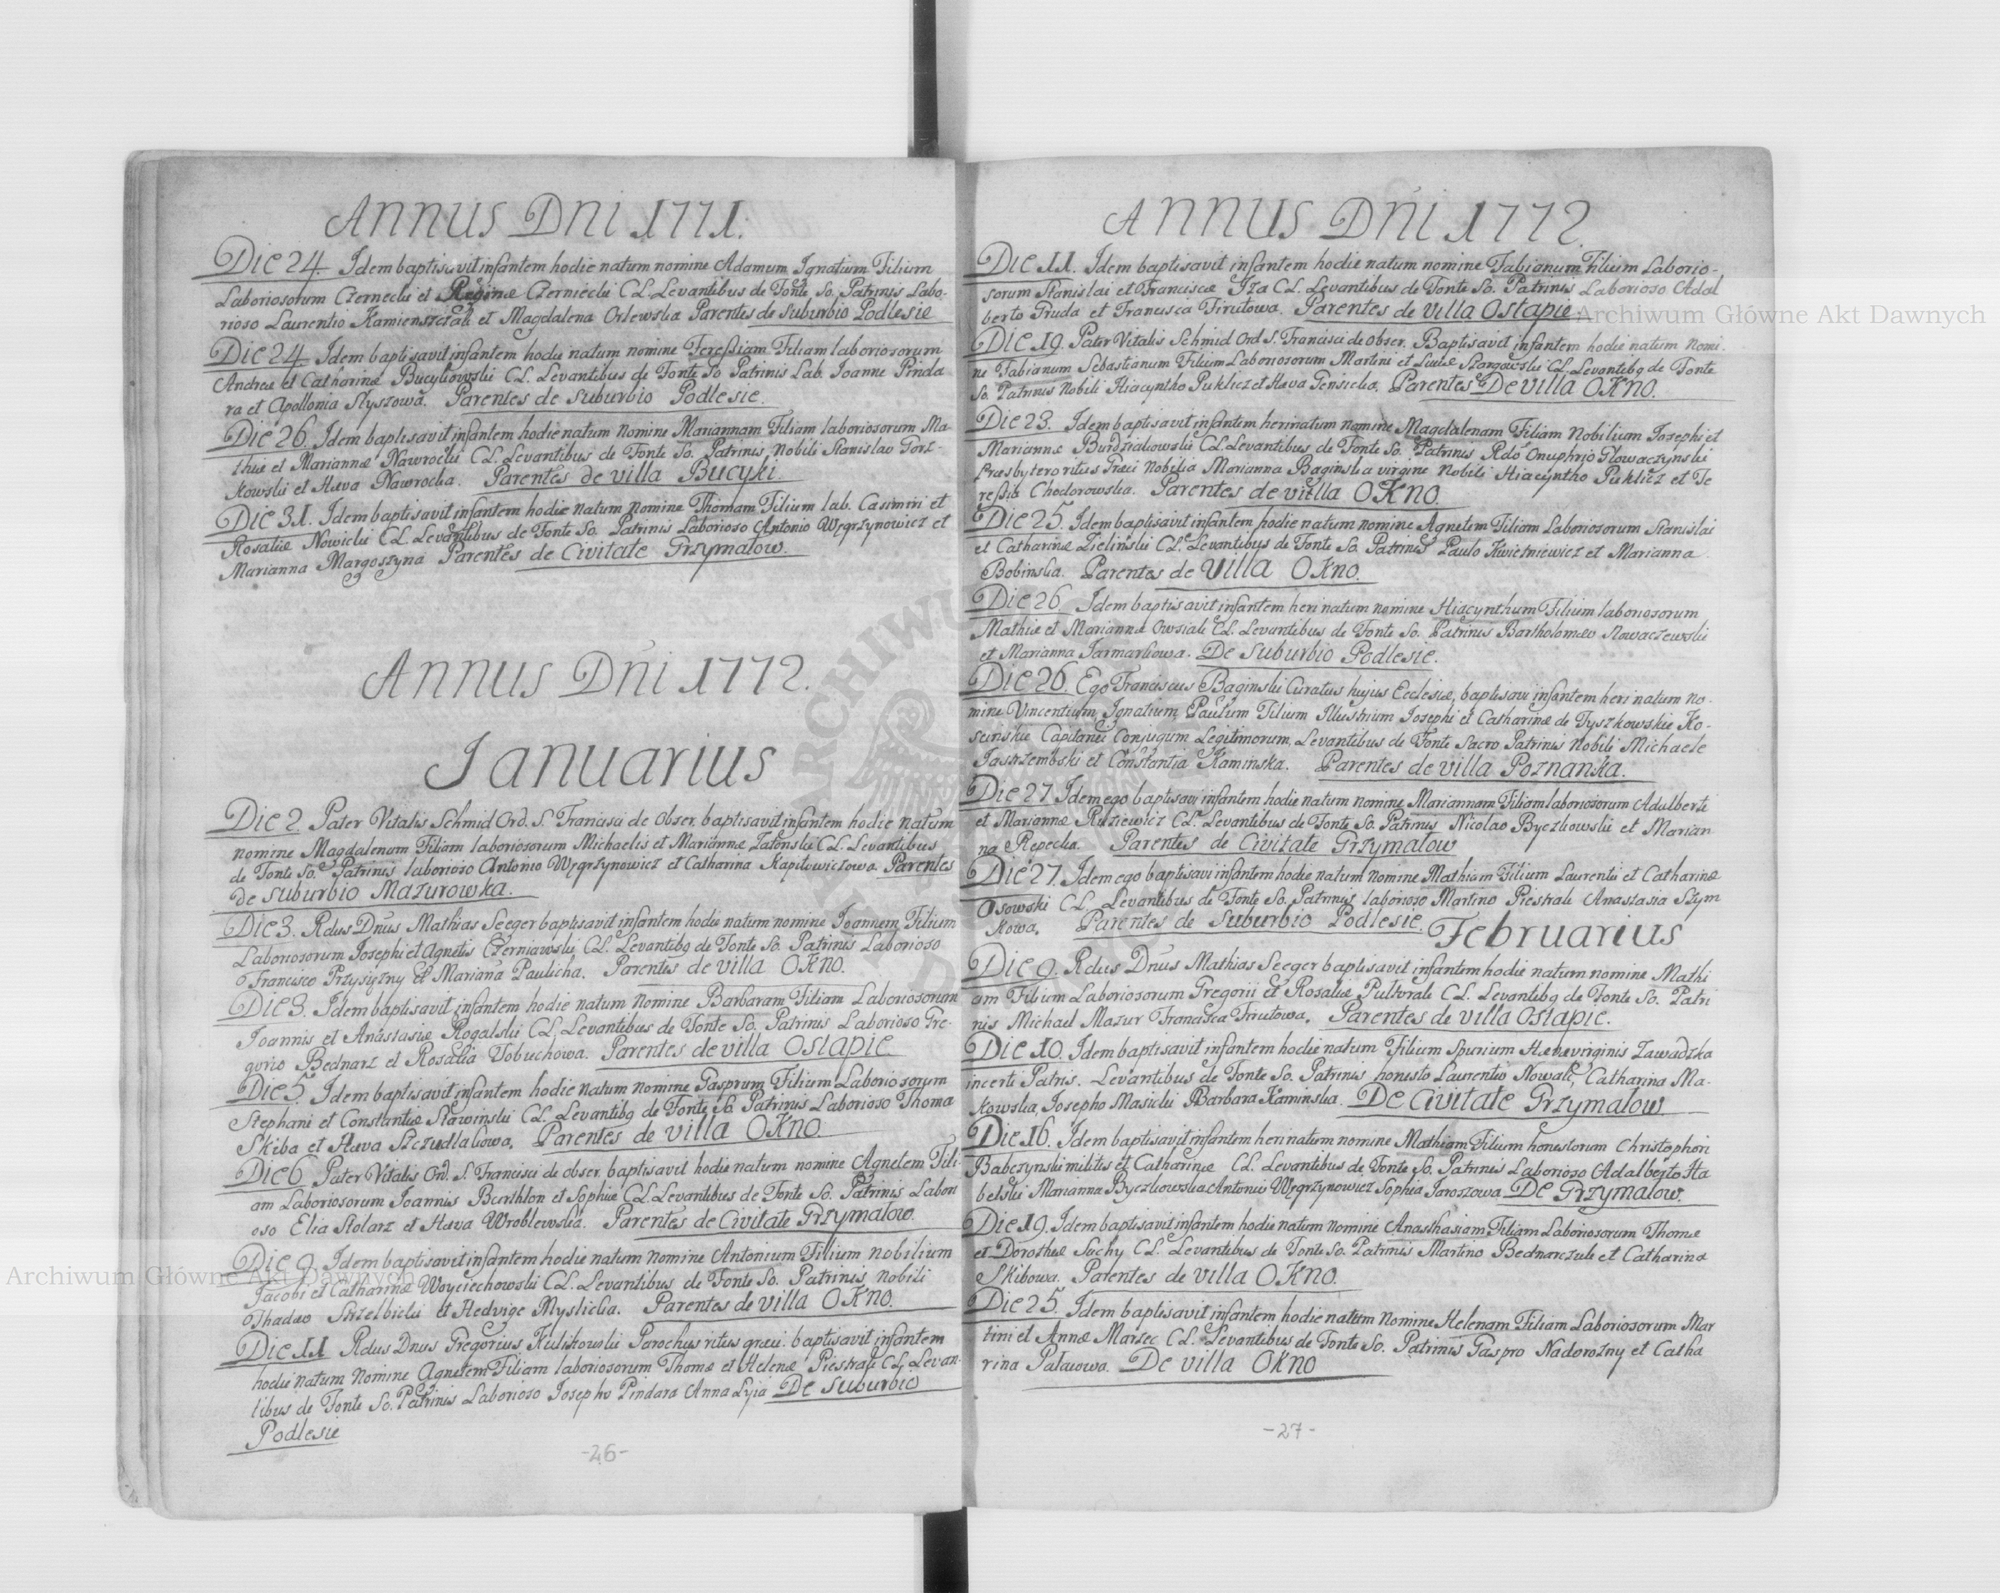 ANNUS DNI 1771.
Die 24. Idem baptisavit infantem hodie natum nomine Adamum Ignatium Filium
Laboriosorum Czernecki et Reginæ Czerniecki CL Levantibus de Fonte So. Patrinis Labo-
rioso Laurentio et Magdalena Orlewska Parentes de Suburbio Podlesie
Die 24. Idem baptisavit infantem hodie natum nomine Teressiam Filiam laboriosorum
Andreæ et Catharinæ Bucykowski CL. Levantibus de Fonte So Patrinis Lab. Joanne Pinda
ra et Apollonia Slyszowa. Parentes de Suburbio Podlesie.
Die 26. Idem baptisavit infantem hodie natum Nomine Mariannam Filiam laboriosorum Ma-
thiæ et Mariannæ Nawrocki CL Levantibus de Fonte So. Patrinis Nobili Stanislao Gorz-
kowski et Hæva Nawrocka. Parentes de villa Bucyki.
Die 31. Idem baptisavit infantem hodie natum nomine Thomam Filium lab. Casimiri et
Rosaliæ Nowicki CL Levantibus de Fonte So. Patrinis Laborioso Antonio Węgrzynowicz et
Marianna Margoszyna Parentes de Civitate Grzymałow.
ANNUS DNI 1772.
Januarius
Die 2 Pater Vitalis Schmid Ord. S. Francisci de Obser. baptisavit infantem hodie natum
nomine Magdalenam Filiam laboriosorum Michaelis et Mariannæ Zatonski CL. Levantibus
de Fonte So. Patrinis laborioso Antonio Węgrzynowicz et Catharina Kapitowiczowa. Parentes
de Suburbio Mazurowka.
Die 3. Rdus Dnus Mathias Seeger baptisavit infantem hodie natum nomine Joannem Filium
Laboriosorum Josephi et Agnetis Czerniawski CL. Levantibq de Fonte So. Patrinis Laborioso
Francisco Przysiężny et Mariana Paulicha. Parentes de villa OKNO.
Die 3. Idem baptisavit infantem hodie natum Nomine Barbaram Filiam Laboriosorum
Joannis et Anastasiæ Rogalski CL Levantibus de Fonte So. Patrinis Laborioso Gre-
gorio Bednarz et Rosalia Tobuchowa. Parentes de villa Ostapie
Die 5. Idem baptisavit infantem hodie natum nomine Gasprum Filium Laboriosorum
Stephani et Constantiæ Sławinski CL Levantibq de Fonte So. Patrinis Laborioso Thoma
Skiba et Hæva Szczudlakowa. Parentes de villa OKNO.
Die 6 Pater Vitalis Ord. S. Francisci de obser. baptisavit hodie natum nomine Agnetem Fili-
am Laboriosorum Joannis et Sophiæ CL Levantibus de Fonte So. Patrinis Labori
oso Elia Stolarz et Hæva Wroblewska. Parentes de Civitate Grzymalow.
Die 9. Idem baptisavit infantem hodie natum Nomine Antonium Filium Nobilium
Jacobi et Catharinæ Woyciechowski CL. Levantibus de Fonte So. Patrinis Nobili
Thadæo Strzelbicki et Hedvige Myslicka. Parentes de villa OKNO.
Die 11 Rdus Dnus Gregorius Kulikowski Parochus ritus græci. baptisavit infantem
hodie natum Nomine Agnetem Filiam laboriosorum Thomæ et Helenæ Piestrak CL Levan-
tibus de Fonte So. Patrinis Laborioso Josepho Pindara Anna Lyia De Suburbio
Podlesie
-26-
ANNUS DNI 1772.
Die 11. Idem baptisavit infantem hodie natum nomine Fabianum Filium Laborio-
sorum Stanislai et Franciscæ CL. Levantibus de Fonte So. Patrinis Laborioso Adal
berto Gruda et Francisca Firutowa. Parentes de villa Ostapie.
Die 19. Pater Vitalis Schmid Ord S. Francisci de obser. Baptisavit infantem hodie natum nomi-
ne Fabianum Sebastianum Filium Laboriosorum Martini et Luciæ Szargowski CL. Levantibq de Fonte
So. Patrinis Nobili Hiacyntho Puklicz et Hæva Gensicka. Parentes De villa OKNO.
Die 23. Idem baptisavit infantem heri natum nomine Magdalenam Filiam Nobilium Josephi et
Mariannæ Burdziakowski CL. Levantibus de Fonte So. Patrinis Rdo Onuphrio Głowaczynski
Præsbytero ritus Græci Nobilia Marianna Baginska virgine Nobili Hiacyntho Puklicz et Te
ressia Chodorowska. Parentes de villa OKNO.
Die 25. Idem baptisavit infantem hodie natum nomine Agnetem Filiam Laboriosorum Stanislai
et Catharinæ Zielinski CL. Levantibus de Fonte So. Patrinis Paulo Kwietniewicz et Marianna
Bobinska. Parentes de villa OKNO.
Die 26 Idem baptisavit infantem heri natum nomine Hiacynthum Filium laboriosorum
Mathiæ et Mariannæ Owsiak CL. Levantibus de Fonte So. Patrinis Bartholomæo Nowaczewski
et Marianna Jarmarkowa. De Suburbio Podlesie.
Die 26. Ego Franciscus Baginski Curatus hujus Ecclesiæ, baptisavi infantem heri natum no-
mine Vincentium Ignatium Paulum Filium Illustrium Josephi et Catharinæ de Tyszkowskie Ko-
scinskie Capitanei Conjugum Legitimorum, Levantibus de Fonte Sacro Patrinis Nobili Michaele
Jastrzembski et Constantia Kaminska. Parentes de villa Poznanka.
Die 27 Idem ego baptisavi infantem hodie natum nomine Mariannam Filiam laboriosorum Adalberti
et Mariannæ Ruziewicz CL. Levantibus de Fonte So. Patrinis Nicolao Byczkowski et Marian
na Repecka. Parentes de Civitate Grzymalow
Die 27. Idem ego baptisavi infantem hodie natum nomine Mathiam Filium Laurentii et Catharinæ
Osowski CL. Levantibus de Fonte So. Patrinis laborioso Martino Piestrak Anastasia Szym
kowa. Parentes de Suburbio Podlesie.
Februarius
Die 9. Rdus Dnus Mathias Seeger baptisavit infantem hodie natum nomine Mathi
am Filium Laboriosorum Gregorii et Rosaliæ Pulturak CL. Levantibq de Fonte So. Patri
nis Michael Mazur Francisca Firutowa. Parentes de villa Ostapie.
Die 10. Idem baptisavit infantem hodie natum Filium Spurium Hævæ virginis Zawadzka
incerti Patris. Levantibus de Fonte So. Patrinis honesto Laurentio Nowak, Catharina Ma-
kowska, Josepho Masicki Barbara Kaminska. De Civitate Grzymalow
Die 16. Idem baptisavit infantem heri natum nomine Mathiam Filium honestorum Christophori
Babczynski militis et Catharinæ CL. Levantibus de Fonte So. Patrinis Laborioso Adalberto Ha
belski Marianna Byczkowska Antonio Węgrzynowicz Sophia Jaroszowa De Grzymalow.
Die 19. Idem baptisavit infantem hodie natum nomine Anasthasiam Filiam Laboriosorum Thomæ
et Dorotheæ Suchy CL. Levantibus de Fonte So. Patrinis Martino Bednarczuk et Catharina
Skibowa. Parentes de villa OKNO.
Die 25. Idem baptisavit infantem hodie natum Nomine Helenam Filiam Laboriosorum Mar
tini et Annæ Marzec CL. Levantibus de Fonte So. Patrinis Gaspro Nadorozny et Catha
rina Pałauowa. De villa OKNO
-27-
Archiwum Główne Akt Dawnych
Archiwum Główne Akt Dawnych